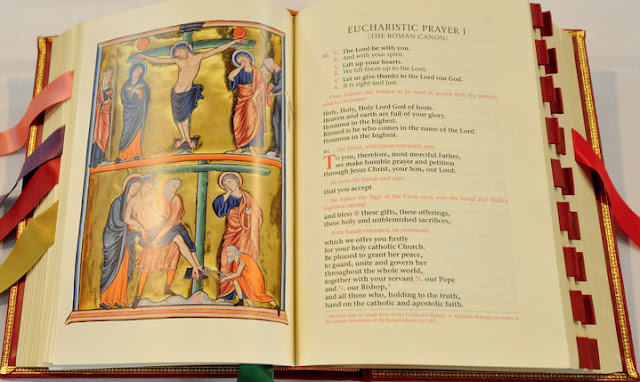 EUCHARISTIC PRAYER I
(THE ROMAN CANON)
83. V. The Lord be with you.
R. And with your spirit.
V. Lift up your hearts.
R. We lift them up to the Lord.
V. Let us give thanks to the Lord our God.
R. It is right and just.
Then follows the Preface to be used in accord with the rubrics,
which concludes:
Holy, Holy, Holy Lord God of hosts.
Heaven and earth are full of your glory.
Hosanna in the highest.
Blessed is he who comes in the name of the Lord.
Hosanna in the highest.
84. The Priest, with hands extended, says:
To you, therefore, most merciful Father,
we make humble prayer and petition
through Jesus Christ, your Son, our Lord:
He joins his hands and says
that you accept
He makes the Sign of the Cross once over the bread and chalice
together, saying:
and bless ✠ these gifts, these offerings,
these holy and unblemished sacrifices,
With hands extended, he continues:
which we offer you firstly
for your holy catholic Church.
Be pleased to grant her peace,
to guard, unite and govern her
throughout the whole world,
together with your servant N. our Pope
and N. our Bishop,*
and all those who, holding to the truth,
hand on the catholic and apostolic faith.
* Mention may be made here of the Coadjutor Bishop, or Auxiliary Bishops, as noted in
the General Instruction of the Roman Missal, no. 149.